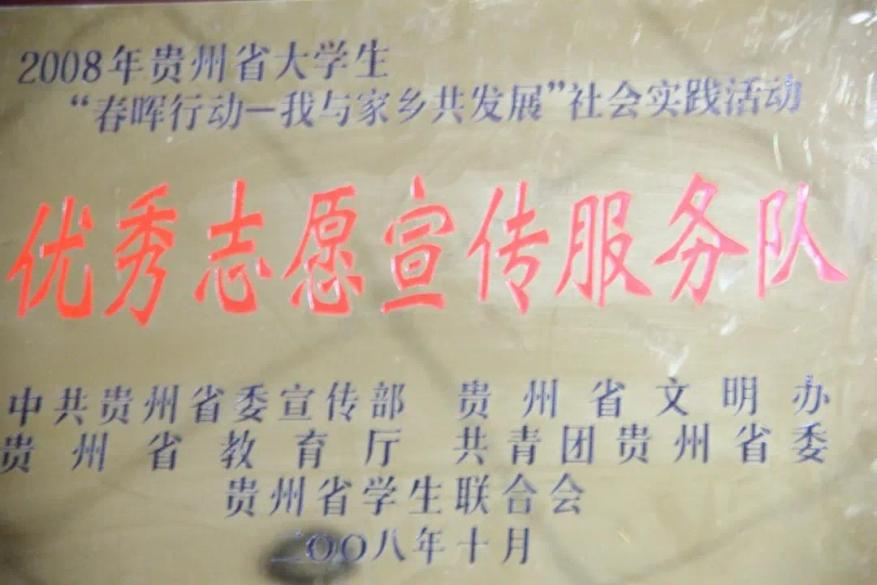 2008年贵州省大学生
“春晖行动—我与家乡共发展”社会实践活动
优秀志愿宣传服务队
中共贵州省委宣传部 贵州省文明办
贵州省教育厅 共青团贵州省委
贵州省学生联合会
二〇〇八年十月